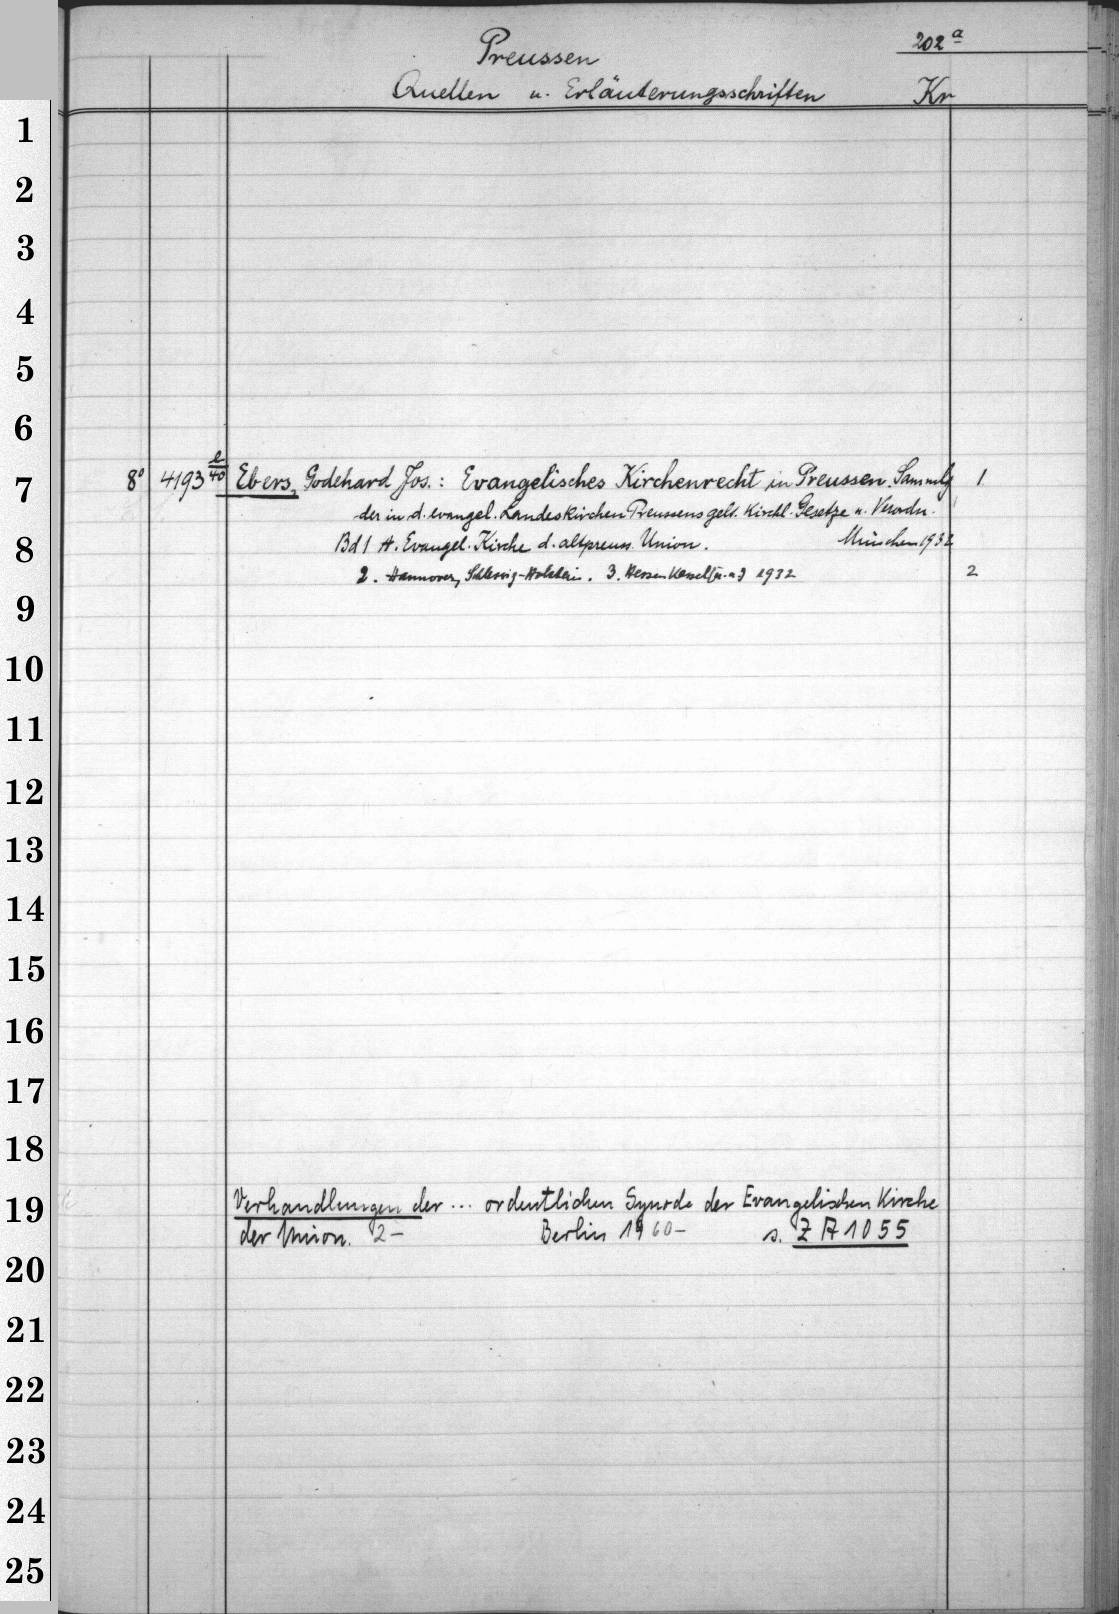 Preussen 202 a
Quellen u. Erläuterungsschriften Kr
1
2
3
4
5
6
7
8
9
10
11
12
13
14
15
16
17
18
19
20
21
22
23
24
25
8° 4193 e/40 Ebers, Godehard Jos.: Evangelisches Kirchenrecht in Preussen. Sammlg 1
der in d. evangel. Landeskirchen Preussens gelt. Kirchl. Gesetze u. Verordn.
Bd 1 A. Evangel. Kirche d. altpreuss. Union. München 1932
2. Hannover, Schleswig-Holstein. 3. Hessen Kassel 1932 2
Verhandlungen der ... ordentlichen Synode der Evangelischen Kirche
der Union. 2- Berlin 1960- s. ZA 1055